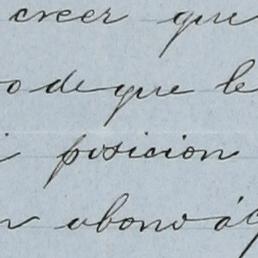 creer que
o de que le
i posicion
n abono á